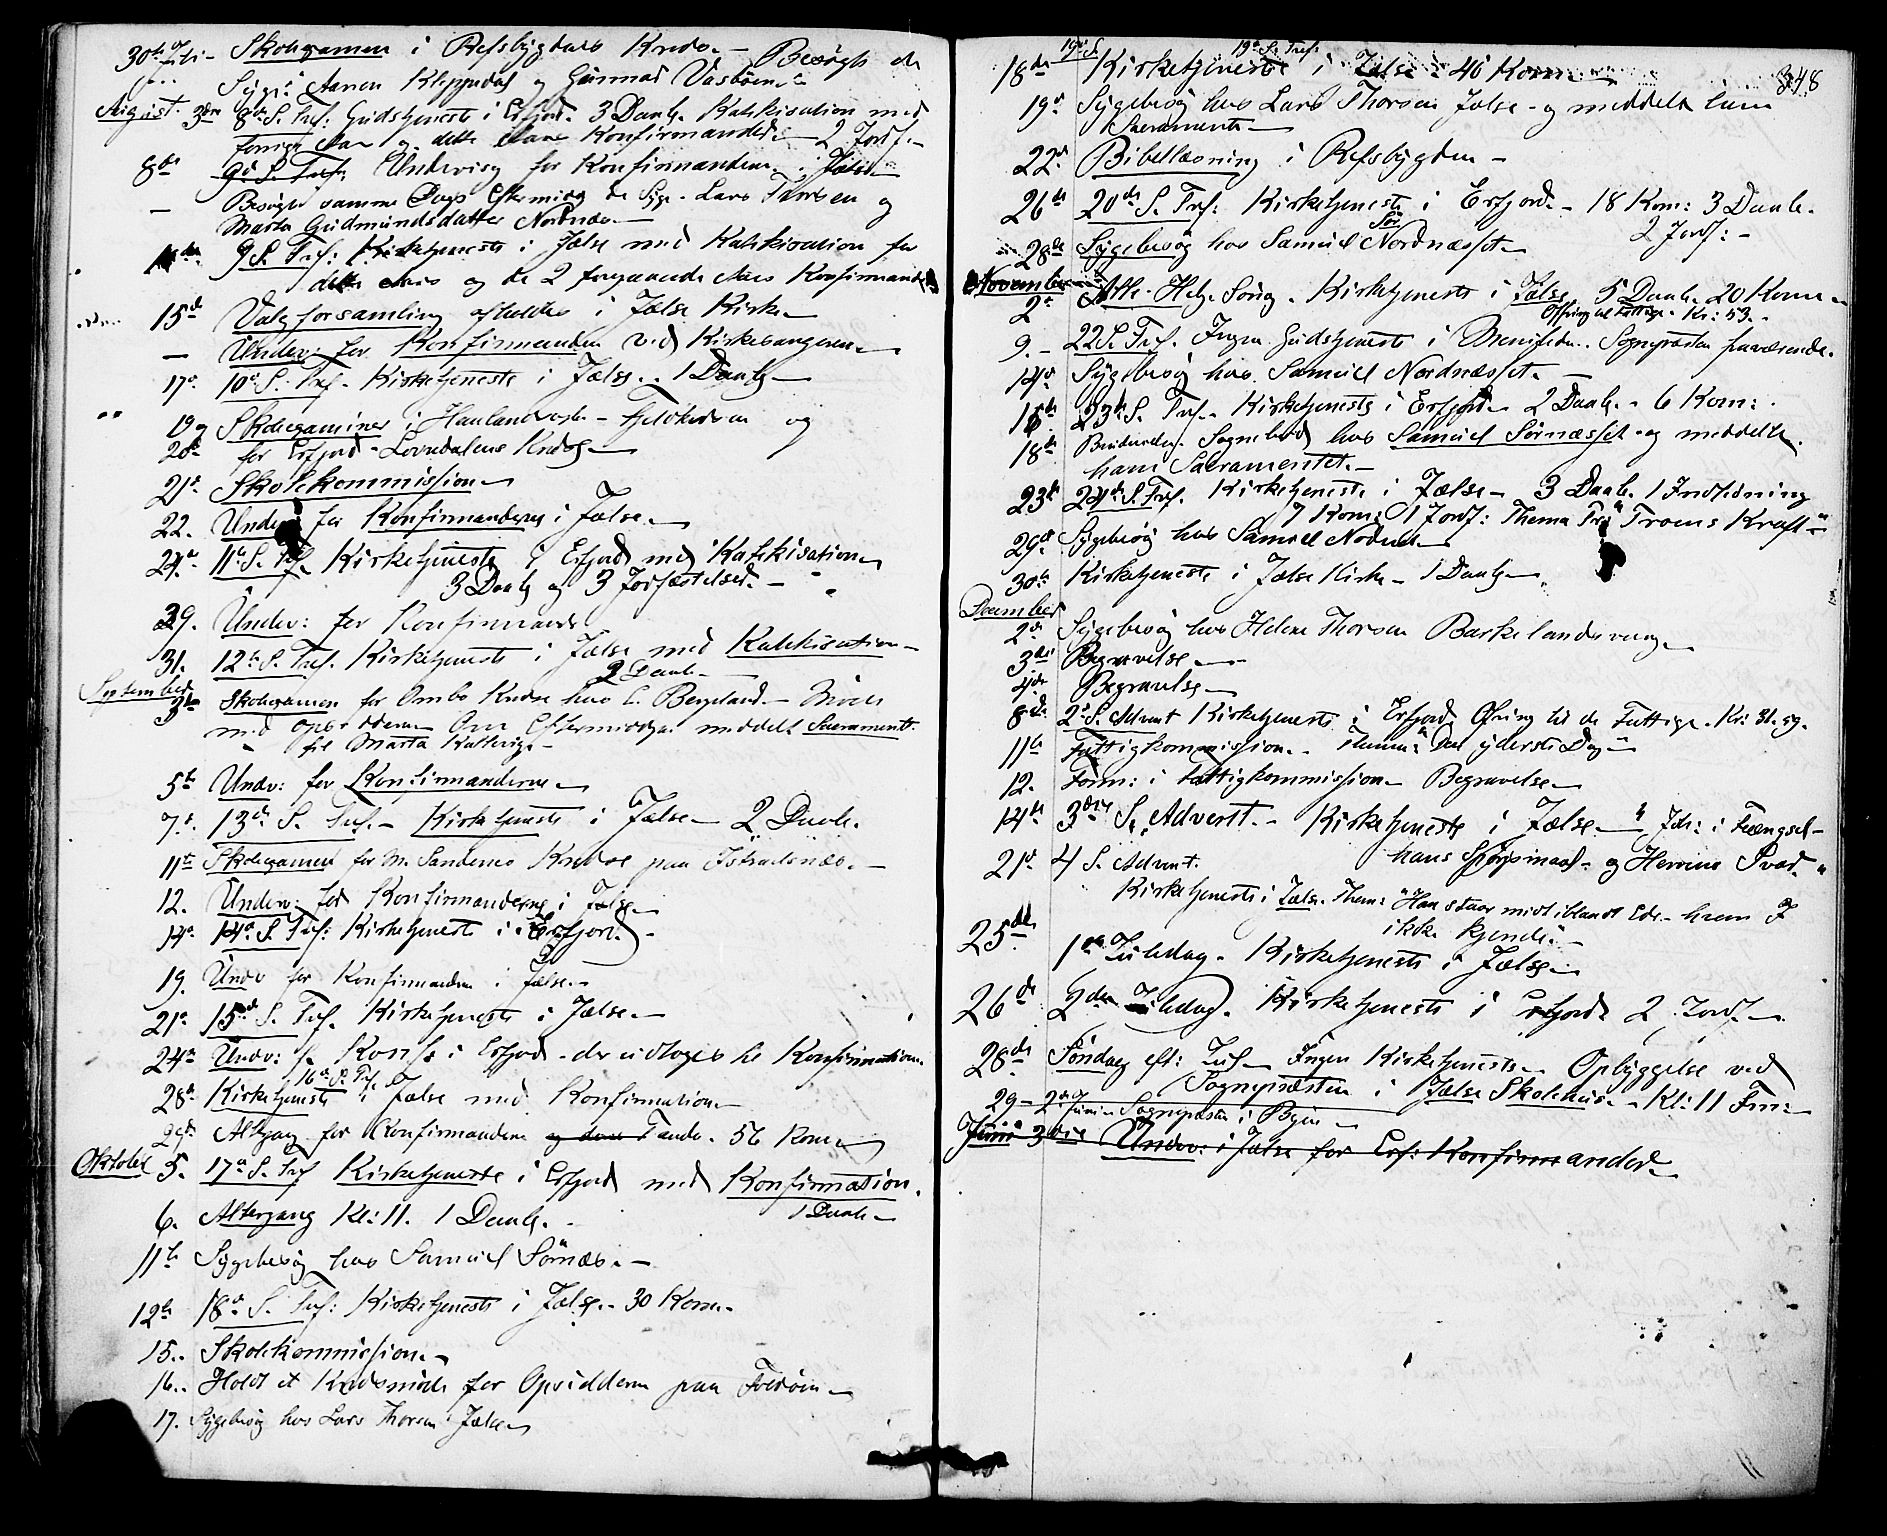 30te Juli - Skolexamen i Refsbygdens Kreds. - Besøgte de
Syge: Aanen Kleppedal og Gunnar
August 3die 8de S. Tref: Gudstjeneste i Erfjord. 3 Daab. Katekisation med
forrige Aars og dette Aars Konfirmander. - 2 Jordf. -
8de 9de S. Tref: Undervisng for Konfirmanderne i Jælse
- Besøgte samme Dags Eftermidg de Syge - Lars Thorsen og
Marta Gudmundsdatter Nordnæs. -
9 S. Tref: Kirketjeneste i Jælse med Katekisation for
dette Aars og de 2 foregaaende Aars Konfirmander
15de Valgforsamling afholdes i Jælse Kirke. -
- Underv: for Konfirmanderne ved Kirkesangeren. -
17de 10de S. Tref. Kirketjeneste i Jælse. 1 Daab. -
19 Skolexaminer i - og
20de for Erfjord - Lovradalens Kreds. -
21de Skolekommission. -
22. Underv: for Konfirmanderne i Jælse. -
24de 11te S. Tref. Kirketjeneste i Erfjord med Katekisation. -
3 Daab og 3 Jordfæstelser. -
29. Underv: for Konfirmander
31. 12te S. Tref. Kirketjeneste i Jælse med Katekisation. -
2 Daab. -
September
3die Skolexamen for Ombo Kreds hos L. Bergeland. - Møde
med Opsidderne. Om Eftermiddagen meddelt Sacramentet
til Marta -
5te Underv: for Konfirmanderne. -
7de 13de S. Tref. - Kirketjeneste i Jælse - 2 Daab.
11te Skolexamen for M. Sandenes Kreds paa -
12. Underv: for Konfirmanderne i Jælse. -
14de 14de S. Tref: Kirketjeneste i Erfjord. -
19. Underv for Konfirmanderne i Jælse. -
21de 15de S. Tref. Kirketjeneste i Jælse. -
24de Underv: f. Konf: i Erfjord - der udtages til Konfirmation.
16de S. Tref.
28de Kirketjeneste i Jælse med Konfirmation. -
29de Altergang for Konfirmanderne og 56 Kom. -
Oktober 5. 17de S. Tref Kirketjeneste i Erfjord med Konfirmation.
1 Daab -
6. Altergang Kl: 11. 1 Daab. -
11te Sygebesøg hos Samuel Sørnæs. -
12te 18de S. Tref: Kirketjeneste i Jælse. - 30 Kom. -
15. Skolekommission. -
16. Holdt et Kredsmøde for Opsidderne paa Foreøen. -
17. Sygebesøg hos Lars Thorsen Jælse. -
348
19de S. Tref:
18de Kirketjeneste i Jælse - 40 Kom. -
19de Sygebesøg hos Lars Thorsen Jælse - og meddelt ham
Sacramentet. -
22de Bibellæsning i Refsbygden -
26de 20de S. Tref: Kirketjeneste i Erfjord. - 18 Kom: 3 Daab.
2 Jordf: -
28de Sygebesøg hos Samuel Nordnæsset. -
November
2den Alle-Helg. Søndg. Kirketjeneste i Jælse 5 Daab. 20 Kom. -
Ofring til Fattige. Kr: 53. -
9. - 22 S. Tref. Ingen Gudstjeneste i Menigheden. Sognepræsten fraværende.
14de Sygebesøg hos Samuel Nordnæsset. -
16de 23de S. Tref. - Kirketjeneste i Erfjord. 2 Daab. - 6 Kom:
18de Sognebud hos Samuel Sørnæsset - og meddelte
ham Sacramentet. -
23de 24de S. Tref. Kirketjeneste i Jælse - 3 Daab. 1 Indledning
7 Kom: 1 Jordf: Thema "Troens Kraft" -
29de Sygebesøg hos Samuel Nordnæs. -
30te Kirketjeneste i Jælse Kirke - 1 Daab. -
December
2den Sygebesøg hos Helene Thorsen Barkelandsvang. -
3die Begravelse. -
4de Begravelse. -
8de 2den S. Advent Kirketjeneste i Erfjord. Ofring til de Fattige. Kr: 31.59.
Thema: Den yderste Dag -
11te Fattigkommission. -
12. Form: i Fattigkommission. - Begravelse. -
14de 3die S. Advent. - Kirketjeneste i Jælse. - "Joh: i Fængsel -
hans Spørgsmaal - og Herrens Svar. "
21de 4 S. Advent.
Kirketjeneste i Jælse. Thema: "Han staar midt iblandt Eder - hvem I
ikke kjende". -
25de 1ste Juledag. Kirketjeneste i Jælse. -
26de 2den Juledag. Kirketjeneste i Erfjord. 2 Jordf. -
28de Søndag eft: Jul - Ingen Kirketjeneste. - Opbyggelse ved
Sognepræsten i Jælse Skolehus. - Kl: 11 Fm: -
29 - 2den Sognepræsten i Byen. -
3die Underv: i Jælse for Erf: Konfirmander. -